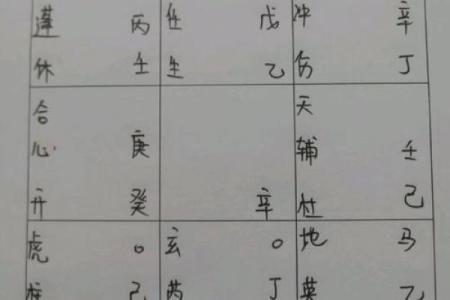 蓬 丙 任 戊 冲 辛
休 壬 生 乙 伤 丁
合 天
心 庚 辅 壬
开 癸 辛 杜 己
虎 ○ 玄 ○ 地 马
柱 己 芮 丁 英 乙